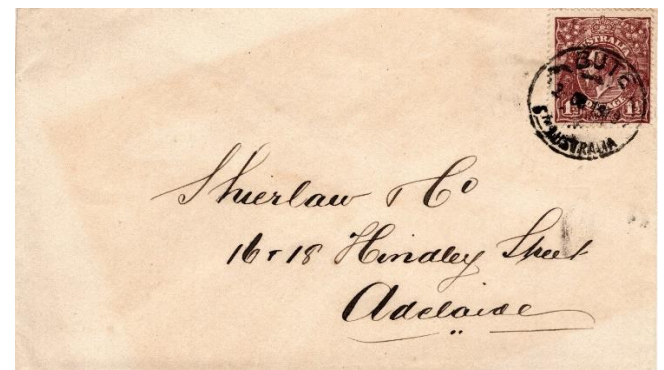 AUSTRALIA
BUTE
Sth AUSTRALIA
Shierlaw & Co
16 & 18 Hindley Street
Adelaide